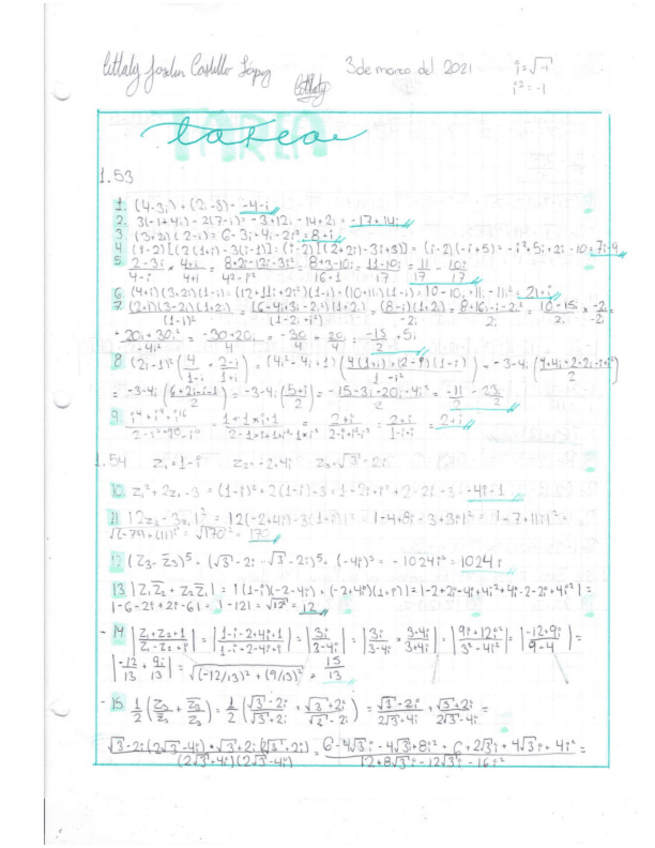 Citlaly Joselin Castillo López 3 de marzo del 2021 i=√-1
Citlaly i² = -1
tarea
TAREA
1.53
1. (4-3i)+(2i-8)= -4-i
2. 3(-1+4i)-2(7-i)= -3+12i-14+2i= -17+14i
3. (3+2i)(2-i)= 6-3i+4i-2i²= 8+i
4 (i-2)[(2(1+i)-3(i-1)]= (i-2)[(2+2i)-3i+3)]= (i-2)(-i+5)= -i²+5i+2i-10= 7i-9
5 2-3i/4-i × 4+i/4+i = 8+2i-12i-3i²/4²-i² = 8+3-10i/16+1 = 11-10i/17 = 11/17 - 10i/17
6 (4+i)(3+2i)(1-i)= (12+11i+2i²)(1-i)= (10+11i)(1-i)= 10-10i+11i-11i²= 21+i
7 (2+i)(3-2i)(1+2i)/(1-i)² = (6-4i+3i-2i²)(1+2i)/(1-2i+i²) = (8-i)(1+2i)/-2i = 8+16i-i-2i²/-2i = 10+15i/-2i × -2i/-2i
= -20i+30i²/-4i² = -30+20i/4 = -30/4 + 20i/4 = -15/2 + 5i
8 (2i-1)²(4/1-i + 2-i/1+i) = (4i²-4i+1)(4(1+i)+(2-i)(1-i)/1-i²) = -3-4i(4+4i+2-2i-i+i²/2)
= -3-4i(6+2i-i-1/2) = -3-4i(5+i/2) = -15-3i-20i-4i²/2 = -11/2 - 23/2
9. i⁴+i⁹+i¹⁶/2-i⁵+i¹⁰-i¹⁵ = 1+1×i+1/2-1×i+1i²-1×i³ = 2+i/2-i+i²-i³ = 2+i/1-i+i = 2+i
1.54 z₁=1-i z₂=-2+4i z₃=√3-2i
10 z₁²+2z₁-3 = (1-i)²+2(1-i)-3 = 1-2i+i²+2-2i-3 = -4i-1
11 |2z₂-3z₁|² = |2(-2+4i)-3(1-i)|² = |-4+8i-3+3i|² = |-7+11i|² =
√(-7²)+(11)² = √170² = 170
12 (z₃-z̄₃)⁵ = (√3-2i-√3-2i)⁵ = (-4i)⁵ = -1024i⁵ = 1024i
13 |z₁z̄₂+z₂z̄₁| = |(1-i)(-2-4i)+(-2+4i)(1+i)| = |-2+2i-4i+4i²+4i-2-2i+4i²| =
|-6-2i+2i-6| = |-12| = √12² = 12
- 14 |z₁+z₂+1/z₁-z₂+i| = |1-i-2+4i+1/1-i-2-4i+i| = |3i/3-4i| = |3i/3-4i × 3+4i/3+4i| = |9i+12i²/3²-4i²| = |-12+9i/9-4| =
|-12/13 + 9i/13| = √(-12/13)²+(9/13)² = 15/13
- 15 1/2(z₃/z̄₃ + z̄₃/z₃) = 1/2(√3-2i/√3+2i + √3+2i/√3-2i) = √3-2i/2√3+4i + √3+2i/2√3-4i =
√3-2i(2√3-4i)+√3+2i(2√3+2i)/(2√3+4i)(2√3-4i) = 6-4√3i-4√3i+8i²+6+2√3i+4√3i+4i²/12+8√3i-12√3i-16i² =